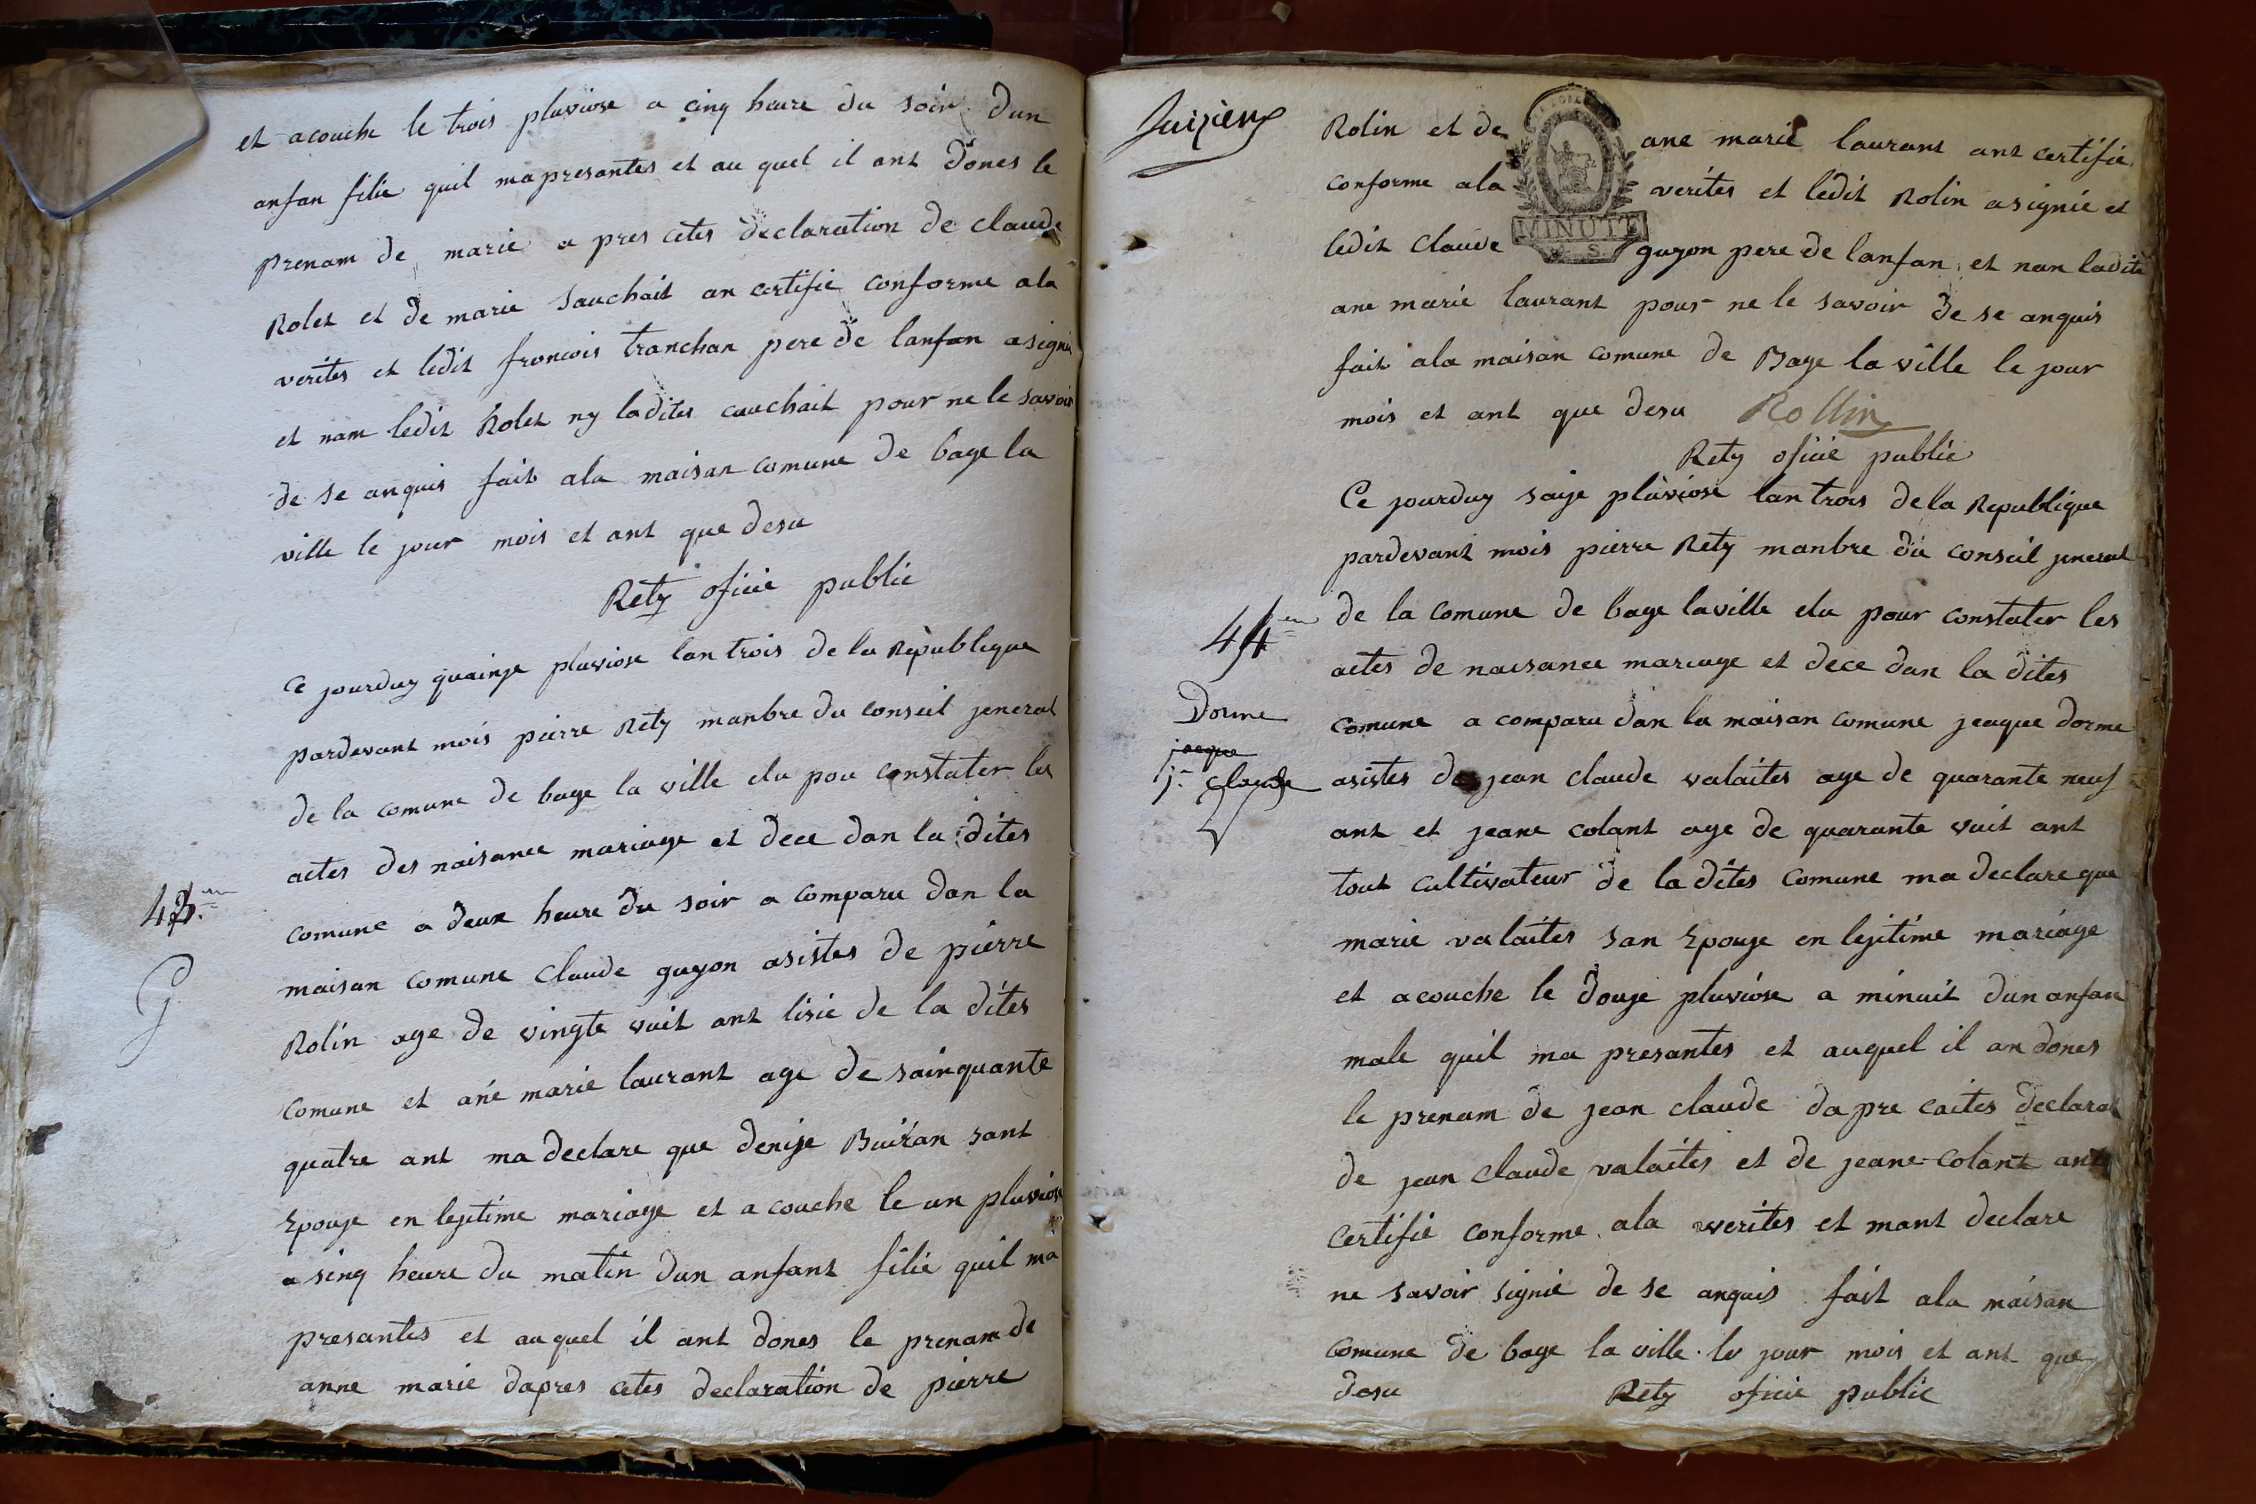 et acouche le trois pluviose a cinq heure du soir dun
anfan filie quil ma presantes et au quel il ant dones le
prenam de marie a pres cetes declaration de claude
Rolet et de marie Sauchait an certifie conforme ala
verites et ledit francois tranchan pere de lanfan a signie
et nam ledit Rolet ny ladites cauchait pour ne le savoir
de se anquis fait ala maisan comune de bage la
ville le jour mois et ant que desu
Rety oficie public
Ce jourduy quainze pluviose lan trois de la Republique
pardevant mois pierre Rety manbre du conseil jeneral
de la comune de bage la ville elu pou constater les
actes des naisance mariage et dece dan la dites
comune a deux heure du soir a comparu dan la
43.em
maisan comune claude guyon asistes de pierre
Rolin age de vingte vuit ant lisie de la dites
comune et ane marie laurant age de sainquante
quatre ant ma declare que denize Buiran sant
Epouze en lejitime mariage et a couche le un pluviose
a sinq heure du matin dun anfant filie quil ma
presantes et auquel il ant dones le prenam de
anne marie dapres cetes declaration de pierre
Rolin et de ane marie laurant ant certifie
MINUTE
conforme ala verites et ledit Rolin a signie et
ledit claude guyon pere de lanfan et nan ladite
ane marie laurant pour ne le savoir de se anquis
fait ala maisan comune de Bage la ville le jour
mois et ant que desu Rollin
Rety oficie public
Ce jourduy saize pluviose lan trois de la Republique
pardevant mois pierre Rety manbre du conseil jeneral
44em
de la comune de bage laville elu pour constater les
actes de naisance mariage et dece dan la dites
Dorme
jacque
j.n claude
comune a comparu dan la maisan comune jeaque dorme
asistes de jean claude valaites age de quarante neuf
ant et jeane colant age de quarante vuit ant
tout cultivateur de la dites comune ma declare que
marie valaites san Epouze en lejitime mariage
et acouche le douze pluviose a minuit dun anfan
male quil ma presantes et auquel il an dones
le prenam de jean claude dapre caites declarat
de jean claude valaites et de jeane colant ant
certifie conforme ala verites et mant declare
ne savoir signie de se anquis fait ala maisan
comune de bage la ville le jour mois et ant que
desu Rety oficie public